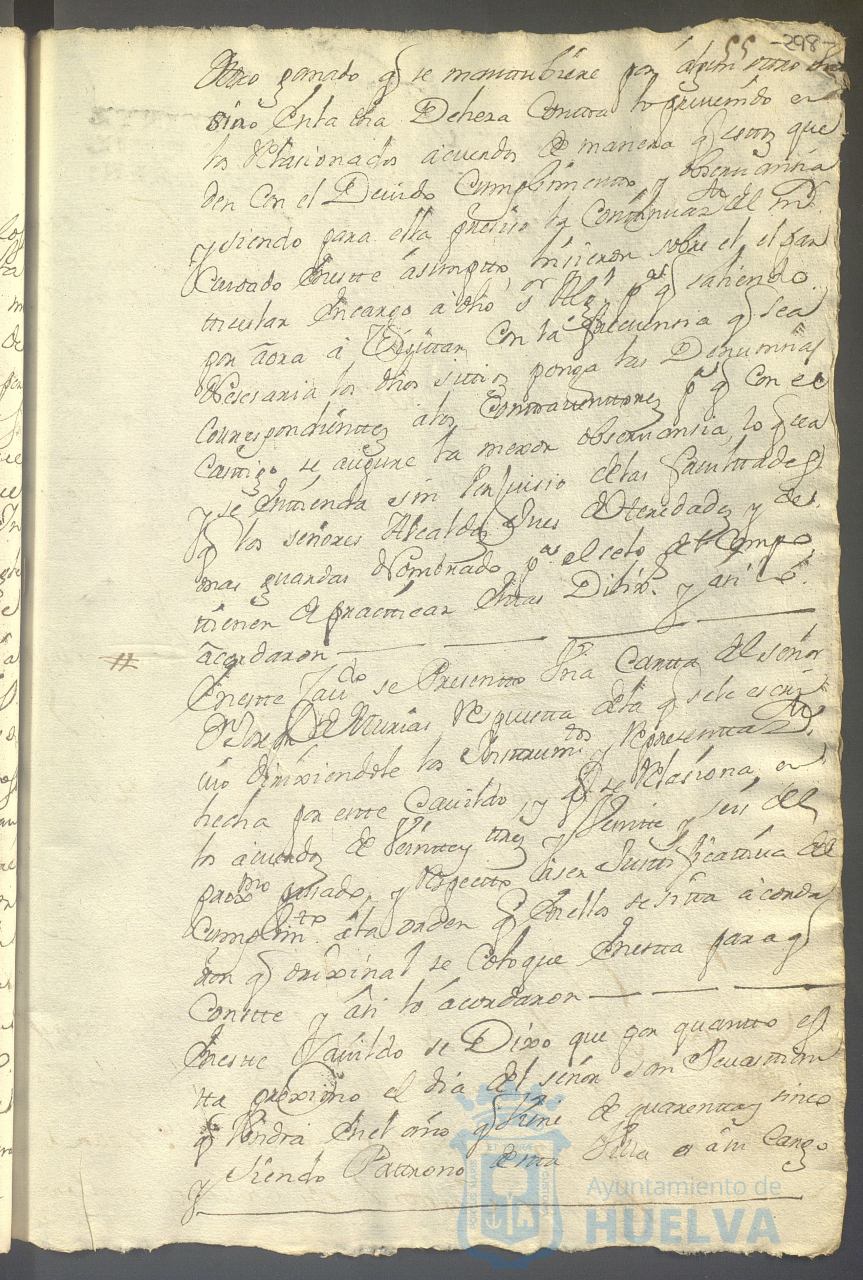 55 -298-
otro ganado q se mantubiere por algun
sitio En la dha Dehesa Contra lo prevenido en
los Relasionados acuerdos de manera q estos que
den con el Devido Cumplimiento y observansia
y siendo para ella presiso la Continuaz.on del
Cuidado En este asumpto hisieron sobre el el par
ticular Encargo a dho s.or p.a q saliendo
por aora a Visittar Con la frecuensia q sea
Nesesaria los dhos sittios ponga las Denunsias
Correspondientes a los Contraventores p.a q con el
Castigo se asegure la mexor observansia, lo q sea
y se Entienda sin Perjuisio de las facultades
q los señores Alcaldes Jues de Heredades y de
mas guardas Nombrado p.a el celo del Campo
tienen de practticar Estas Dilix.s y asi lo
acordaron
# En este Cav.do se Presentto Una Cartta del señor
D.n Murias Respuesta de la q se le escri
vio dirixiendole los Instrum.tos y Representtaz.on
hecha por este Cavildo, y q se Relasiona, en
los acuerdos de Veintte y tres y Veintte y seis del
prox.mo pasado, y Respectto a ser Justtificattiva del
Cumplim.to de la orden q En ellos se sitta acorda
ron q orixinal se Coloque En este para q
Constte y asi lo acordaron
En este Cavildo se Dixo que por quantto es
tta proximo el dia del señor san Sevastian
q Vendra En el año q viene de quarentta y sinco
y siendo Pattrono de esta Villa a su Cargo
Ayuntamiento de
HUELVA